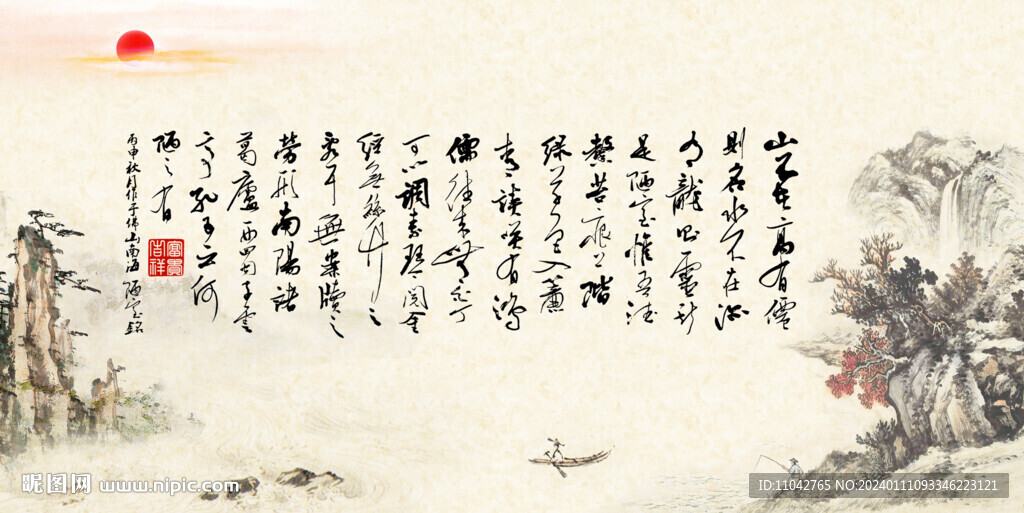 山不在高有僊
則名水不在深
有龍則靈斯
是陋室惟吾德
馨苔痕上階
綠草色入簾
青談笑有鴻
儒往來無白丁
可以調素琴閱金
經無絲竹之
亂耳無案牘之
勞形南陽諸
葛廬西蜀子雲
亭孔子云何
陋之有
丙申秋月作于佛山南海 陋室銘
富貴吉祥
昵图网 www.nipic.com
ID:11042765 NO:20240111093346223121